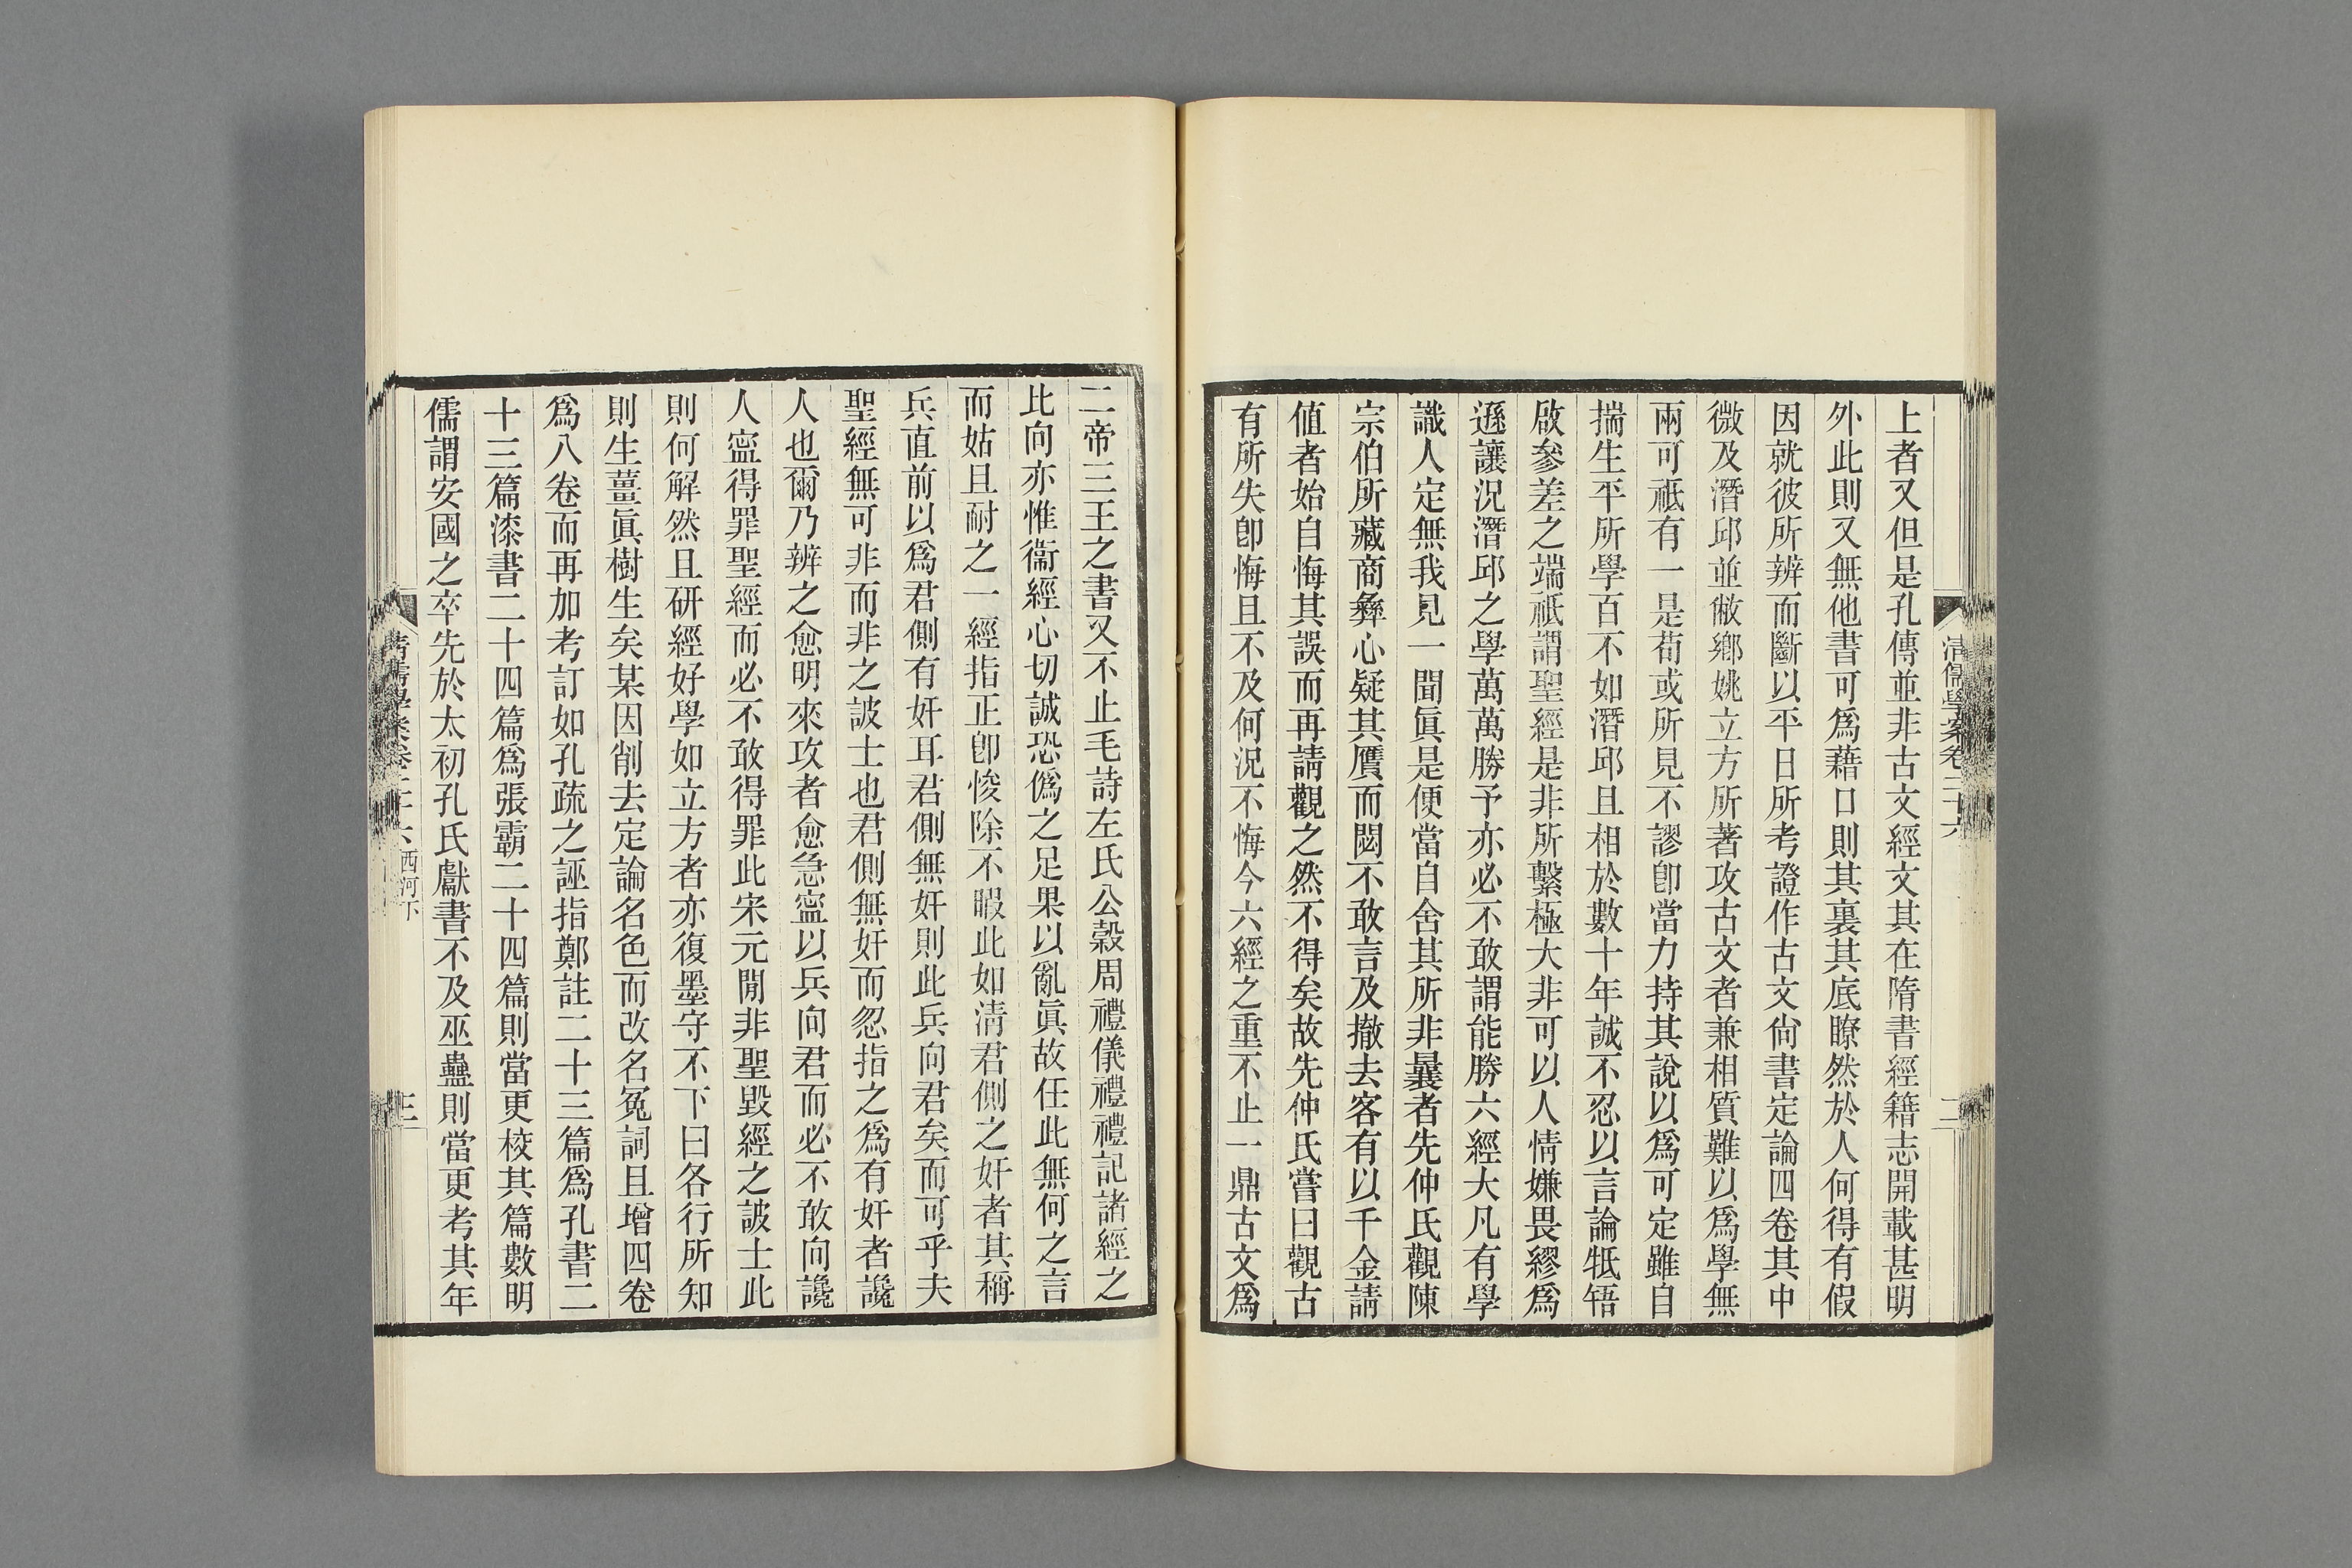 清儒學案卷二十六
二
上者又但是孔傳並非古文經文其在隋書經籍志開載甚明
外此則又無他書可爲藉口則其裏其底瞭然於人何得有假
因就彼所辨而斷以平日所考證作古文尙書定論四卷其中
微及潛邱並敝鄉姚立方所著攻古文者兼相質難以爲學無
兩可祗有一是苟或所見不謬卽當力持其說以爲可定雖自
揣生平所學百不如潛邱且相於數十年誠不忍以言論牴牾
啟參差之端祗謂聖經是非所繫極大非可以人情嫌畏繆爲
遜讓況潛邱之學萬萬勝予亦必不敢謂能勝六經大凡有學
識人定無我見一聞眞是便當自舍其所非曩者先仲氏觀陳
宗伯所藏商彝心疑其贋而閟不敢言及撤去客有以千金請
值者始自悔其誤而再請觀之然不得矣故先仲氏嘗曰觀古
有所失卽悔且不及何況不悔今六經之重不止一鼎古文爲
二帝三王之書又不止毛詩左氏公穀周禮儀禮禮記諸經之
比向亦惟衞經心切誠恐僞之足果以亂眞故任此無何之言
而姑且耐之一經指正卽悛除不暇此如淸君側之奸者其稱
兵直前以爲君側有奸耳君側無奸則此兵向君矣而可乎夫
聖經無可非而非之詖士也君側無奸而忽指之爲有奸者讒
人也爾乃辨之愈明來攻者愈急寍以兵向君而必不敢向讒
人寍得罪聖經而必不敢得罪此宋元閒非聖毀經之詖士此
則何解然且研經好學如立方者亦復墨守不下曰各行所知
則生薑眞樹生矣某因削去定論名色而改名冤詞且增四卷
爲八卷而再加考訂如孔疏之誣指鄭註二十三篇爲孔書二
十三篇漆書二十四篇爲張霸二十四篇則當更校其篇數明
儒謂安國之卒先於太初孔氏獻書不及巫蠱則當更考其年
清儒學案卷二十六 西河下
三